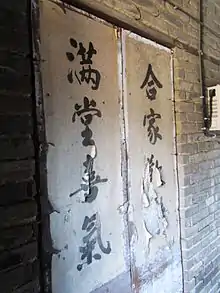 合家歡
满堂喜氣